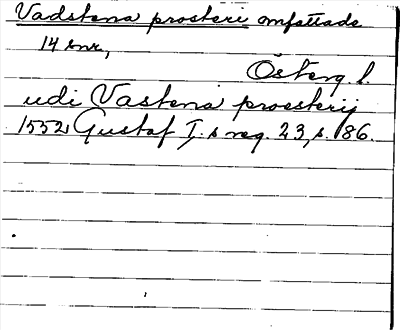 Vadstena prosteri omfattade
14 snr,
Österg l.
udi Vastena proesterij
1552 Gustaf I. s reg. 23, s. 86.